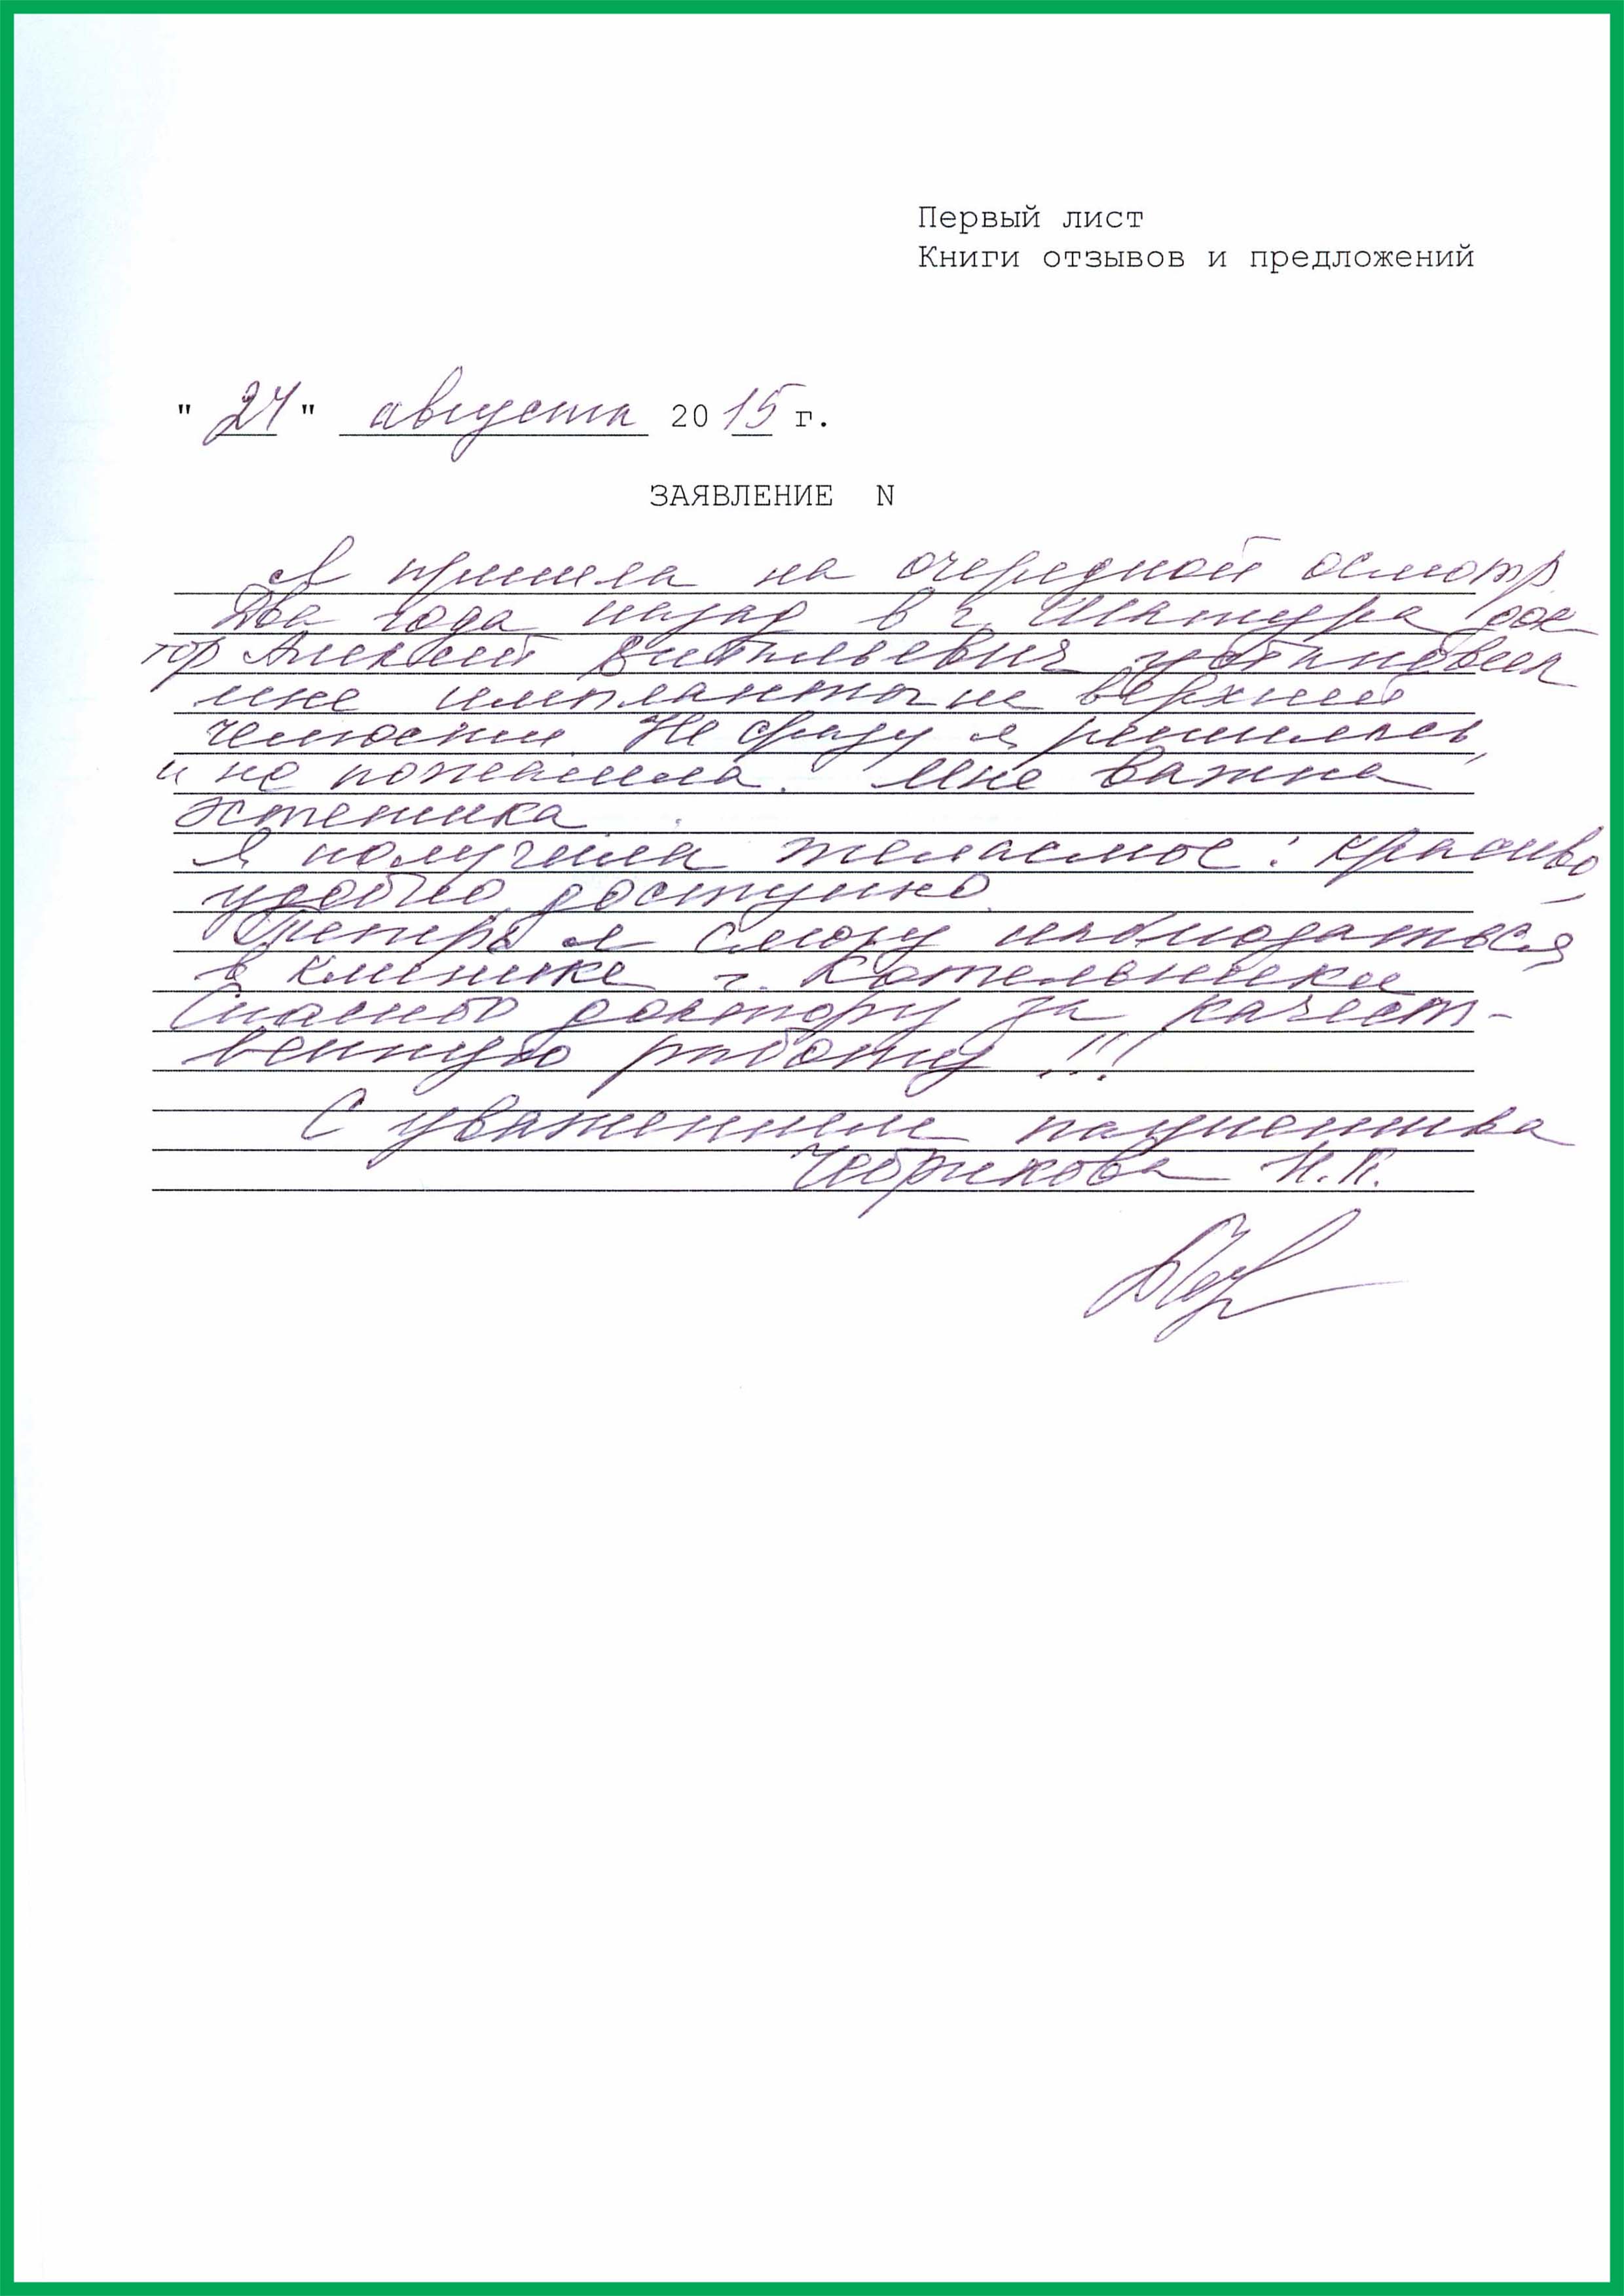 Первый лист
Книги отзывов и предложений
"24" августа 2015 г.
ЗАЯВЛЕНИЕ N
Я пришла на очередной осмотр
Два года назад в г. Шатура док
тор Алексей Витальевич установил
мне импланты на верхней
челюсти. Не сразу я решилась,
и не пожалела. Мне важна
эстетика.
Я получила желаемое: красиво,
удобно, доступно.
Теперь я смогу наблюдаться
в клинике г. Котельники
Спасибо доктору за качест-
венную работу!!!
С уважением пациентка
Чебрикова Н.П.